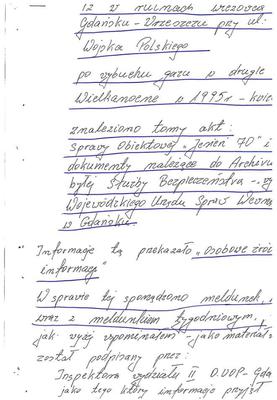 12 w ruinach wieżowca
Gdańsku - Wrzeszczu przy ul.
Wojska Polskiego
po wybuchu gazu w drugie
Wielkanocne w 1995r - kwie
znaleziono tomy akt:
Sprawy Obiektowej „Jesień 70" i
dokumenty należące do Archiwu
byłej Służby Bezpieczeństwa -
Wojewódzkiego Urzędu Spraw Wewnę
w Gdańsku.
Informację tą przekazało „Osobowe źród
informacji"
W sprawie tej sporządzono meldunek,
wraz z meldunkiem tygodniowym,
jak wyżej wspomniałem - jako materiał
został podpisany przez:
Inspektora wydziału II D.UOP - Gda
jako tego który informację przyjął